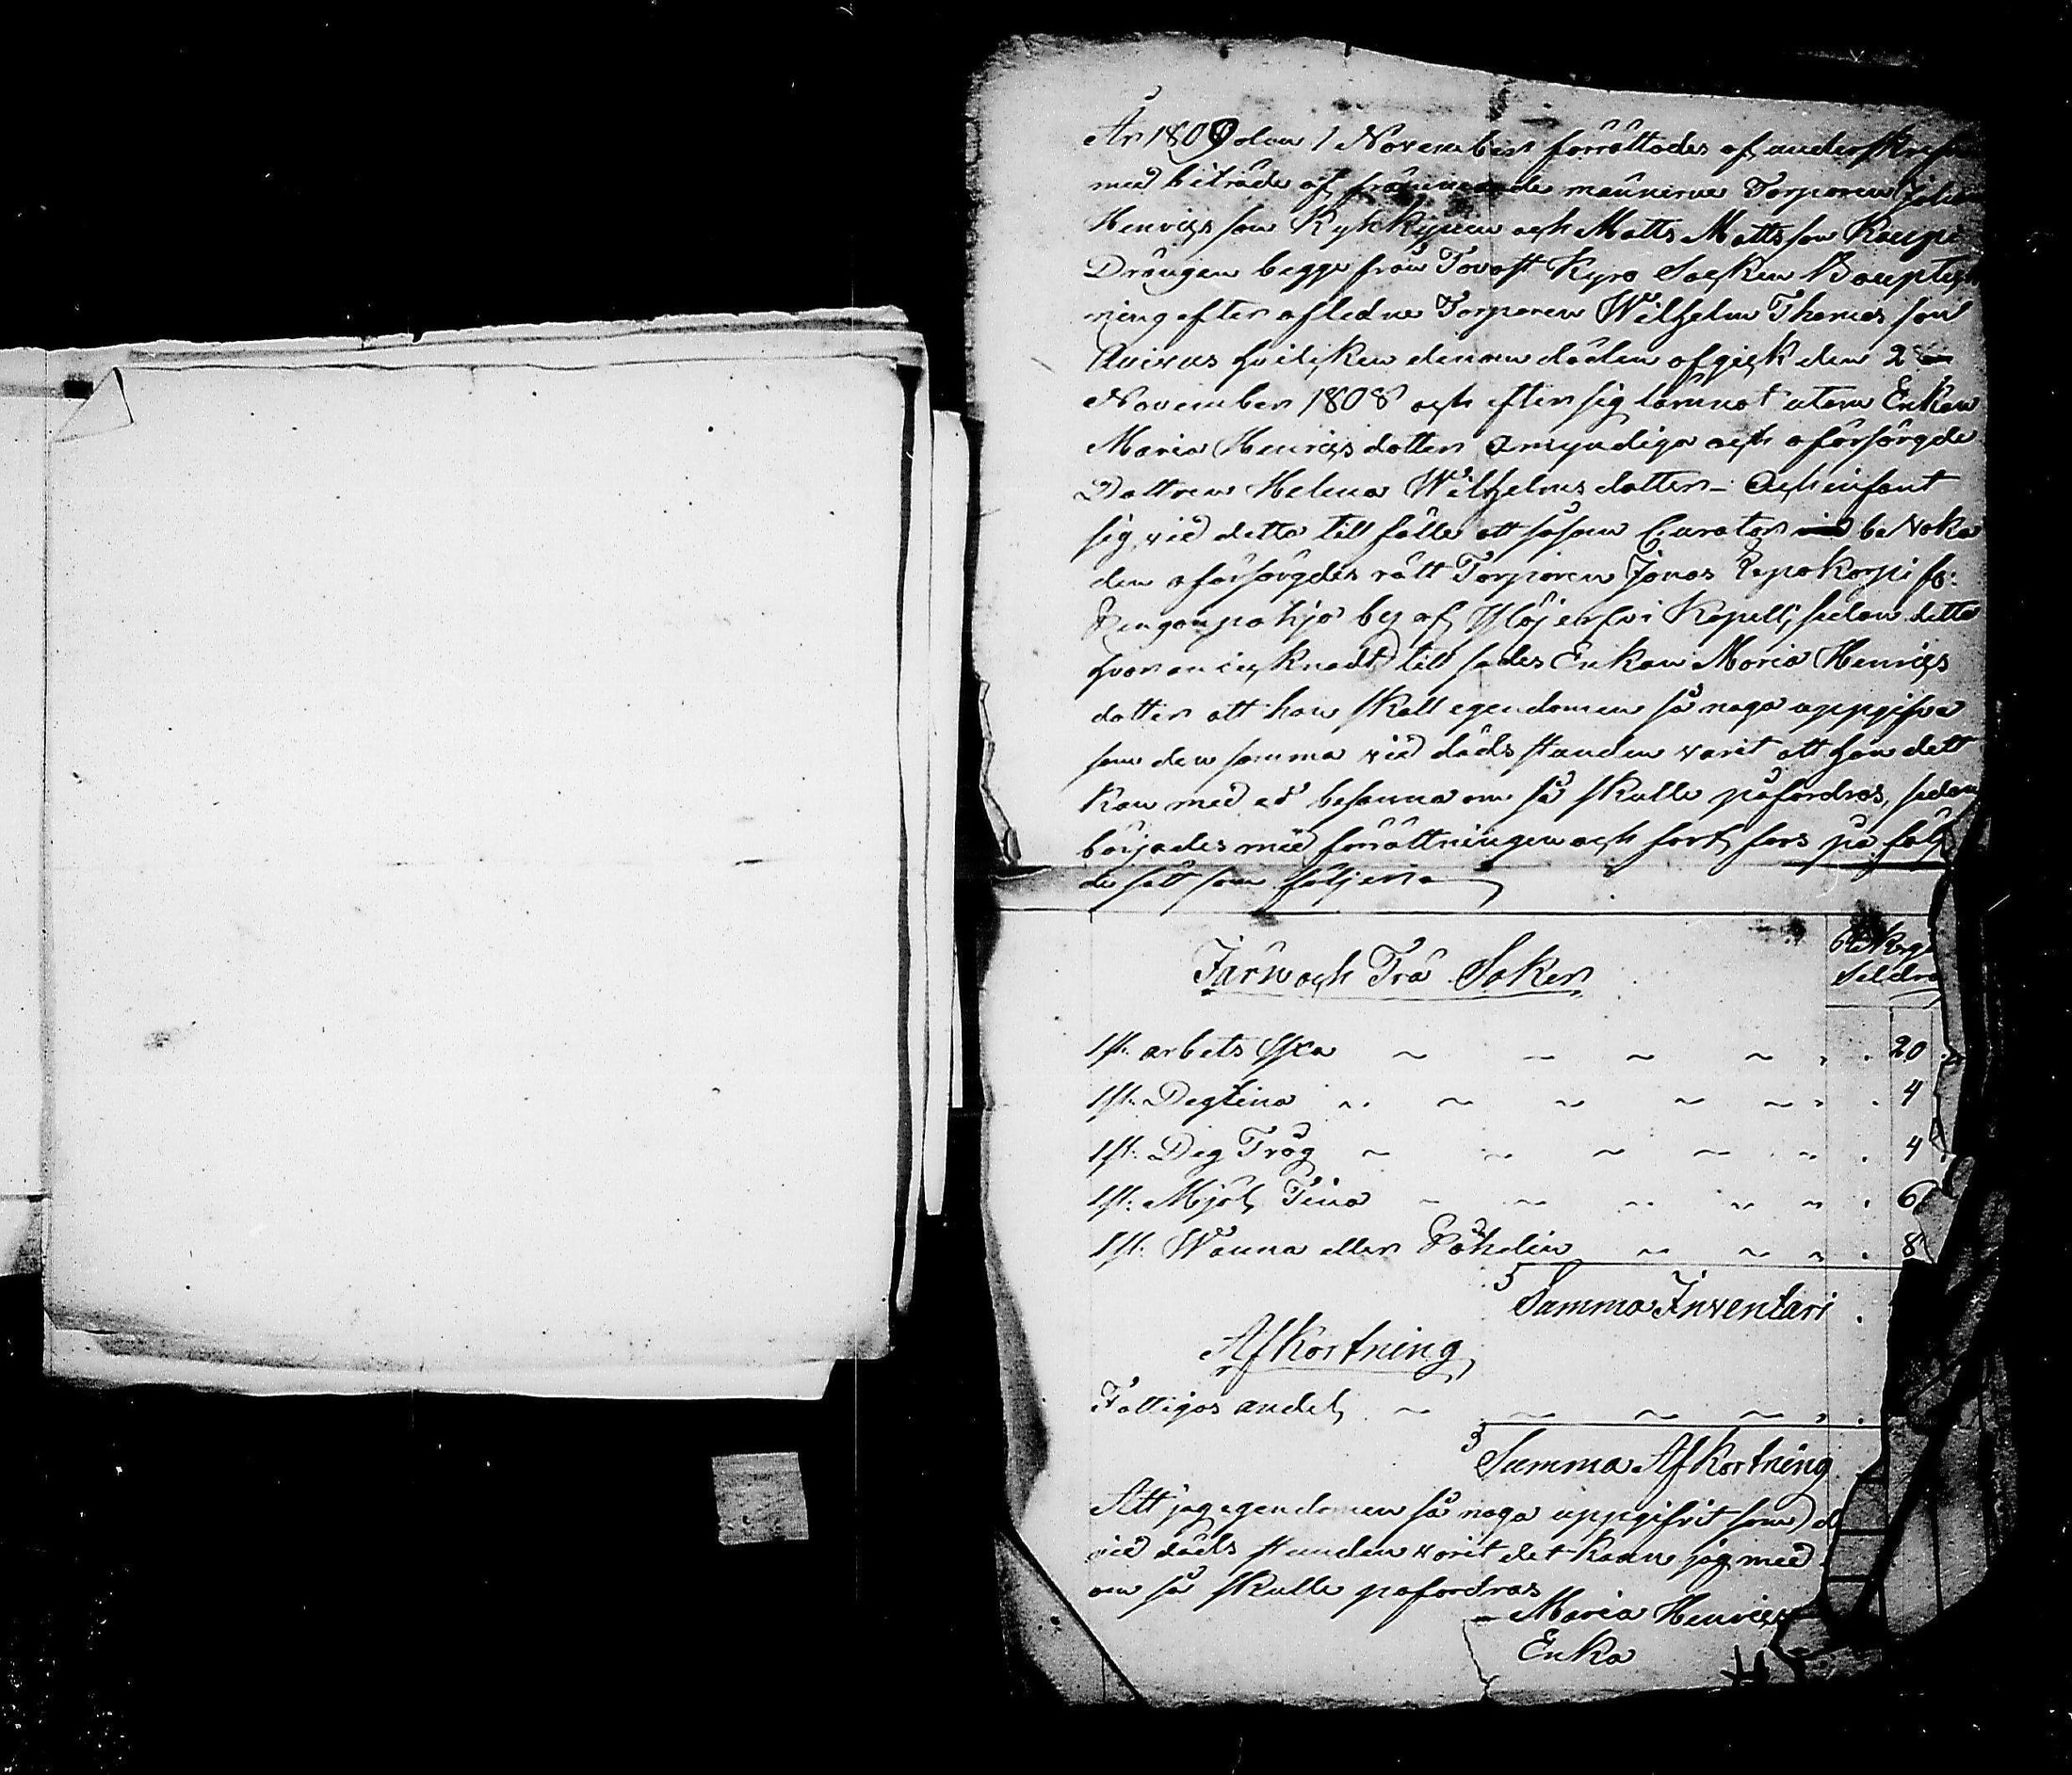 År 1809 den 1 November förrättades af underskrifne
med biträde af främmande männerne Torparen Johan
Henrics son Kyhkynen och Matts Matts son Kaupi
Drängen begge från Tavast Kyro Socken Bouptek
ning efter aflidne Torparen Wilhelm Thomas son
hvilcken denom döden afgick den 2
November 1808 och efter sig lämnat utom Enkan
Maria Henricsdotter Omyndiga och oförsörgde
Dottren Helena Wilhelmsdotter – Och infant
sig vid detta till fälle att såsom Curator bevaka
den oförsörgdes rätt Torparen Jonas Repokorpi fr:
Rengonpohja by af Kapell, sedan detta
hvar ancicknadt till sades Enkan Maria Henrics
dotter att hon skall egendomen så noga uppgifva
som den samma vid döds stunden varit att hon dett
kan med ed besanna om så skulle påfordras, sedan
börjades med förrättningen och fort fors på följ
de sätt som följer
Järn och Trä Saker
Rikzg
Seldra
1 st: arbets Yxa 20
1 st: Degtina 4
1 st: Deg Tråg 4
1 st: Mjöl Tina 6
1 st: Wanna eller 8
Summa Inventari
Afkortning
Fattigas andel
Summa Afkortning
Att jag egendomen så noga uppgifvit som d
vid döds stunden varit det kann jag med
om så skulle pafordras
Maria Henrics
Enka